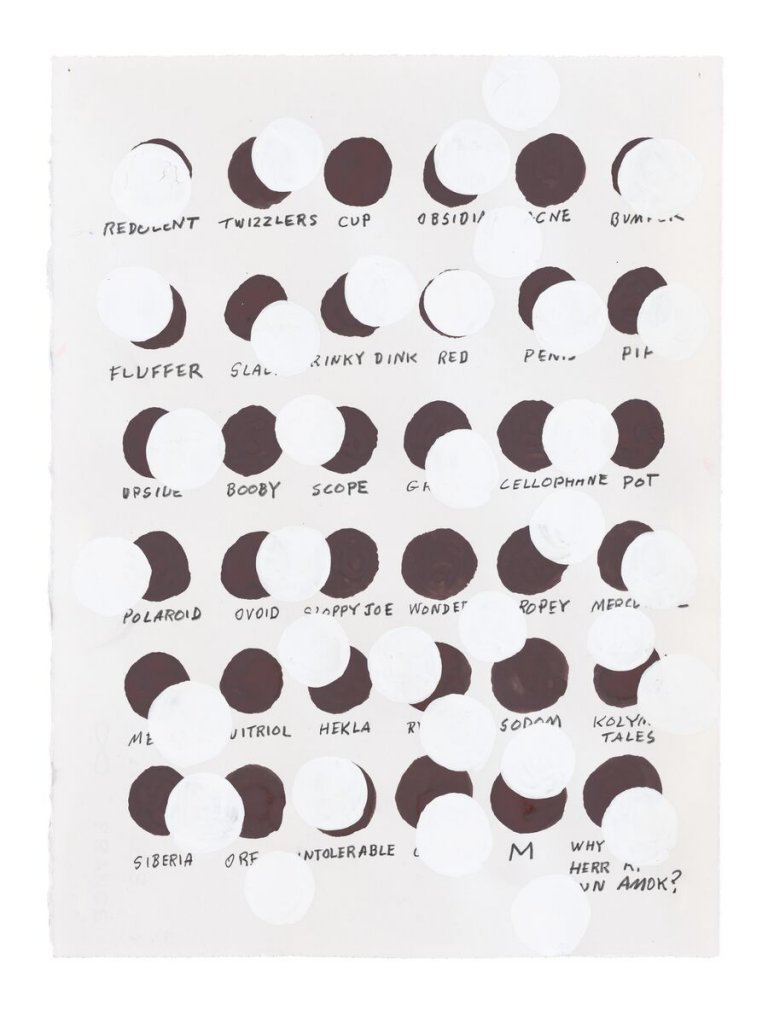 REDOLENT TWIZZLERS CUP OBSIDIAN BUMPER
FLUFFER RINKY DINK RED PENIS
UPSIDE BOOBY SCOPE CELLOPHANE POT
POLAROID OVOID SLOPPY JOE WONDER ROPEY
VITRIOL HEKLA SODOM KOLYMA
TALES
SIBERIA INTOLERABLE M WHY
HERR
AMOK?